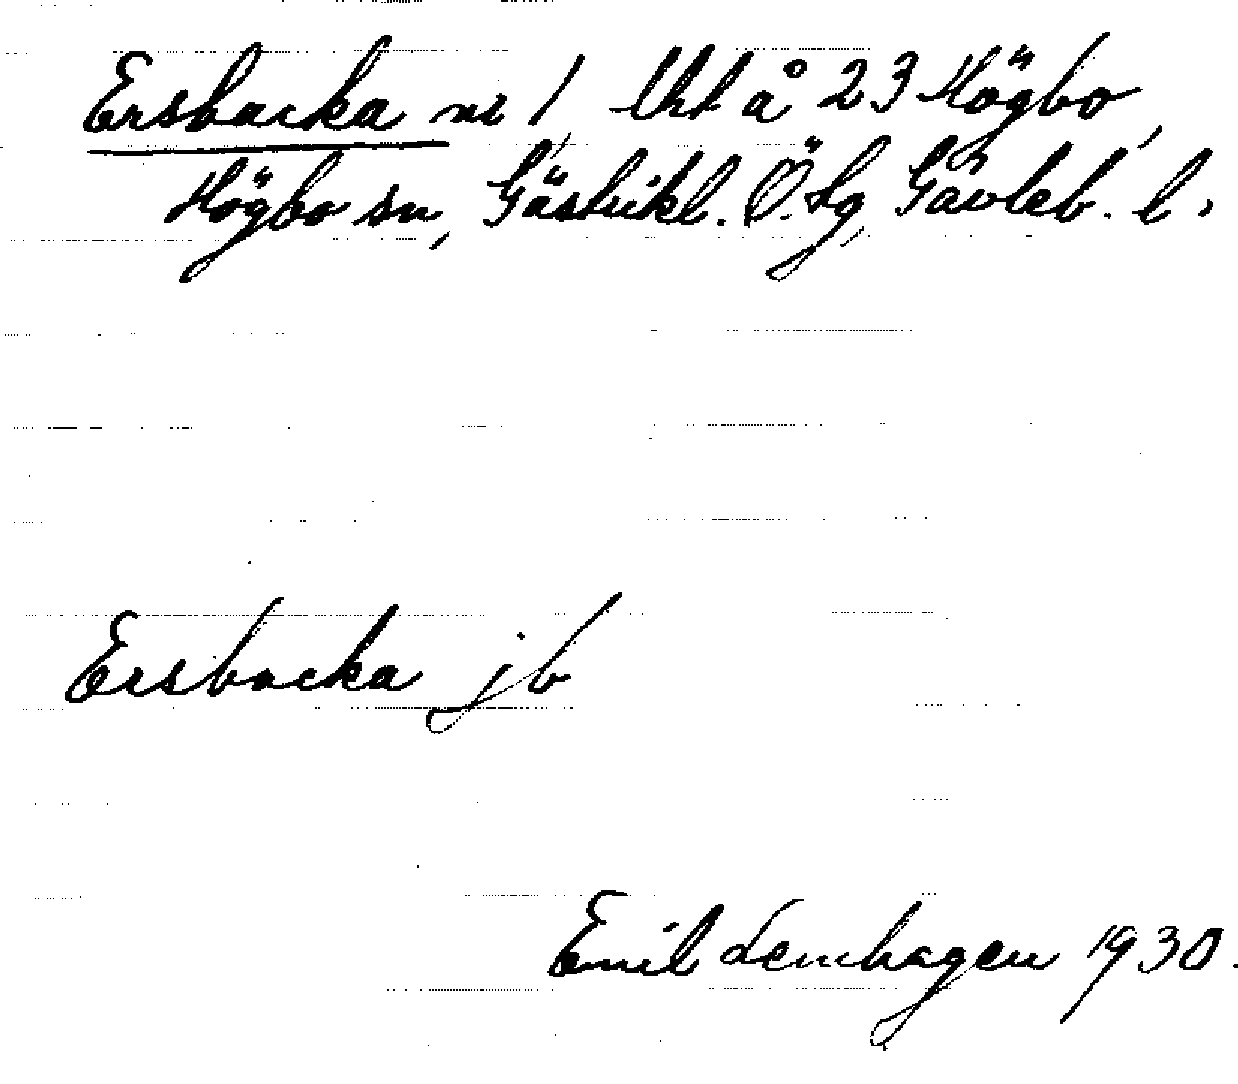 Ersbacka nr 1, lht å 23 Högbo,
Högbo sn, Gästrikl. Ö. tg, Gävleb. l.
Ersbacka jb
Emil Lemhagen 1930.